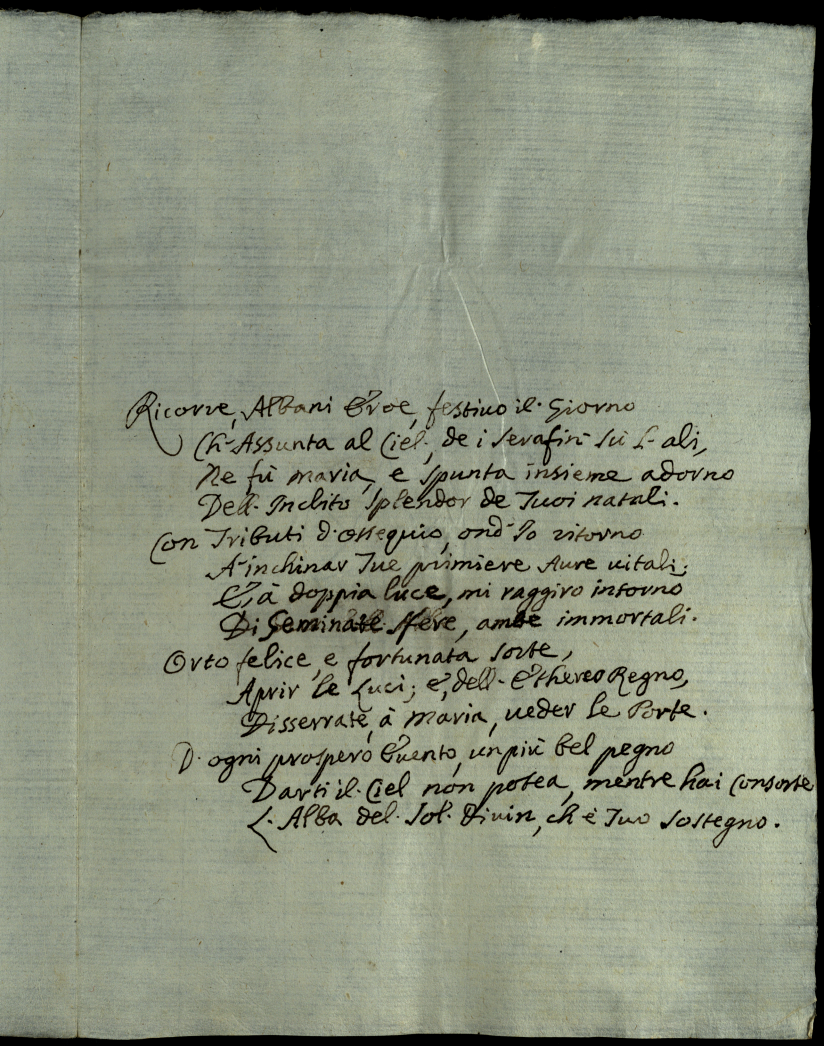 Ricorre, Albani Eroe, festiuo il Giorno
Ch' Assunta al Ciel, de i Serafin sù l' ali,
Ne fù Maria, e spunta insieme adorno
Dell' Inclito splendor de Tuoi natali.
Con Tributi d' ossequio, ond' Io ritorno
A' inchinar Tue primiere Aure uitali;
E, à doppia luce, mi raggiro intorno
Di Sfere, ambe immortali.
Orto felice, e fortunata sorte,
Aprir le Luci; e, dell' Ethereo Regno,
Disserrate, à Maria, ueder le Porte.
D' ogni prospero Euento, un più bel pegno
Darti il Ciel non potea, mentre hai Consorte
L' Alba del Sol Diuin, ch' è Tuo sostegno.